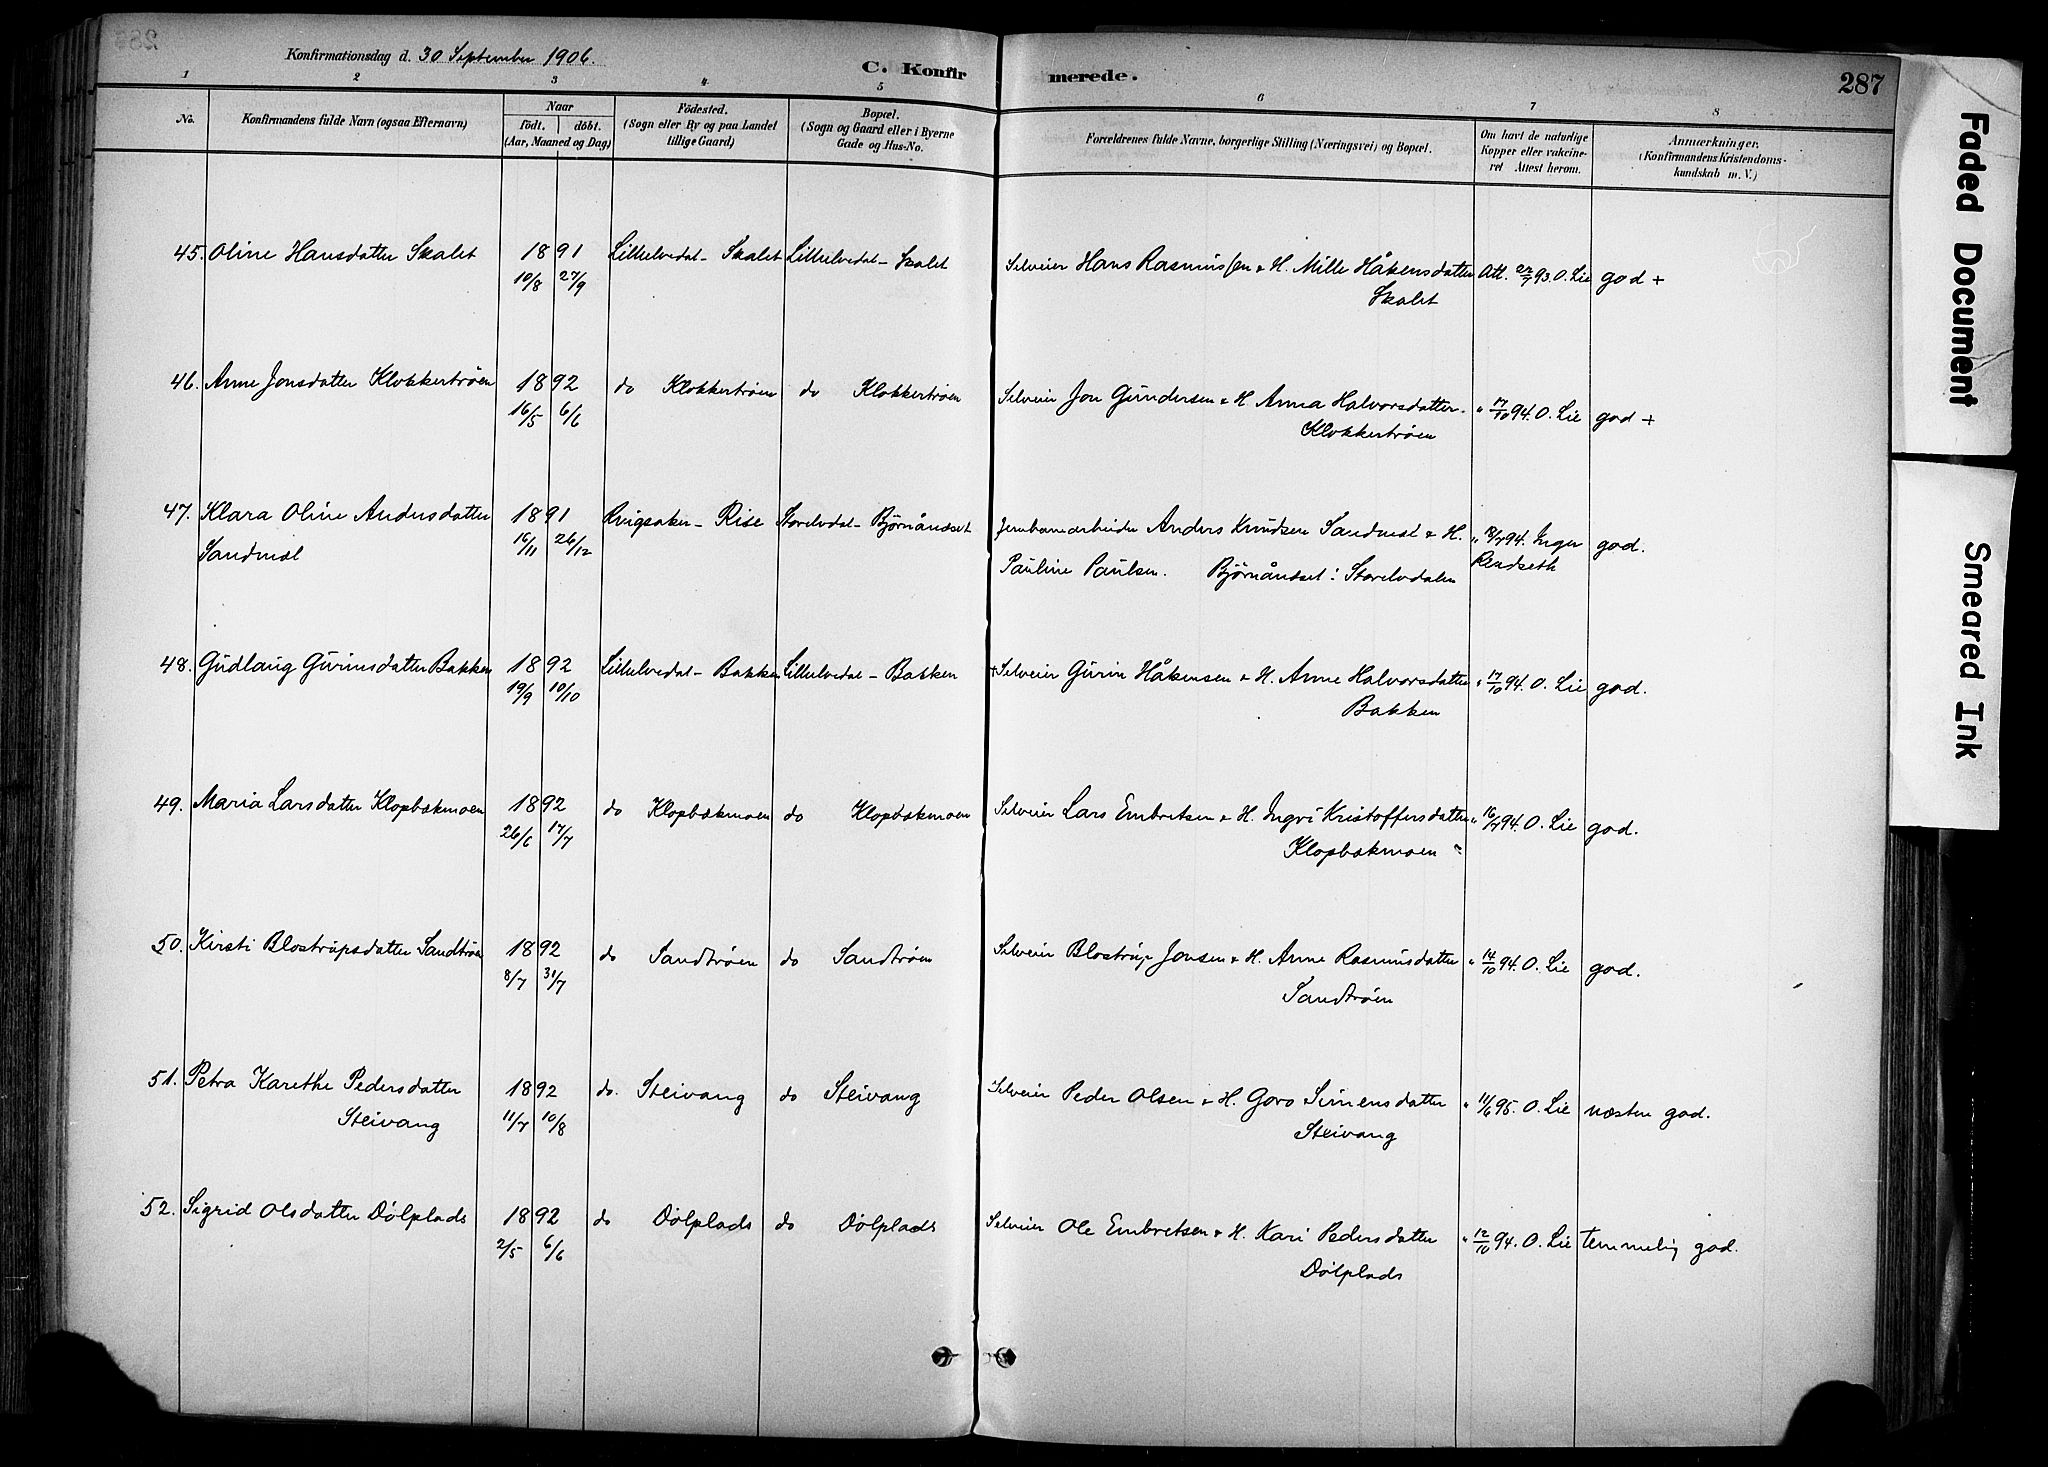 Konfirmationsdag d. 30 September 1906.
C. Konfirmerede.
287
1 2 3 4 5 6 7 8
No.
Konfirmandens fulde Navn (ogsaa Efternavn)
Naar
födt. döbt.
(Aar, Maaned og Dag)
Födested.
(Sogn eller By og paa Landet
tillige Gaard)
Bopæl.
(Sogn og Gaard eller i Byerne
Gade og Hus-No.
Forældrenes fulde Navne, borgerlige Stilling (Næringsvei) og Bopæl.
Om havt de naturlige
Kopper eller vakcine-
ret Attest herom.
Anmærkninger.
(Konfirmandens Kristendoms-
kundskab m. V.)
45. Oline Hansdatter Skalet 1891 10/8 27/9 Lilleelvedal - Skalet Lilleelvedal - Skalet Selveier Hans Rasmussen & H. Mille Håkensdatter Att. 27/7 93. O. Lie god +
Skalet
46. Anne Jonsdatter Klokkertrøen 1892 16/5 6/6 do Klokkertrøen do Klokkertrøen Selveier Jon Gundersen & H. Anna Halvorsdatter " 17/10 94. O. Lie god +
Klokkertrøen
47. Klara Oline Andersdatter 1891 16/11 26/12 Ringsaker - Rise Storelvdal - Bjørnåndset Jernbanearbeider Anders Knudsen Sandmæl & H. " 18/7 94. Inger god.
Sandmæl Pauline Paulsen. Bjørnåndset i Storelvdalen Rendseth
48. Gudlaug Gurimsdatter Bakken 1892 19/9 10/10 Lilleelvedal - Bakken Lilleelvedal - Bakken + Selveier Gurim Håkensen & H. Anne Halvorsdatter " 17/10 94. O. Lie god.
Bakken
49. Maria Larsdatter Klopbækmoen 1892 26/6 17/7 do Klopbækmoen do Klopbækmoen Selveier Lars Embretsen & H. Ingri Kristoffersdatter " 16/7 94. O. Lie god.
Klopbækmoen
50. Kirsti Blostrupsdatter Sandtrøen 1892 8/7 31/7 do Sandtrøen do Sandtrøen Selveier Blostrup Jonsen & H. Anne Rasmusdatter " 14/10 94. O. Lie god.
Sandtrøen
51. Petra Karethe Pedersdatter 1892 11/7 10/8 do. Steivang do Steivang Selveier Peder Olsen & H. Goro Simensdatter " 11/6 95. O. Lie næsten god.
Steivang Steivang
52. Sigrid Olsdatter Dølplads 1892 2/5 6/6 do Dølplads do Dølplads Selveier Ole Embretsen & H. Kari Pedersdatter " 12/10 94. O. Lie temmelig god.
Dølplads
Faded Document
Smeared Ink